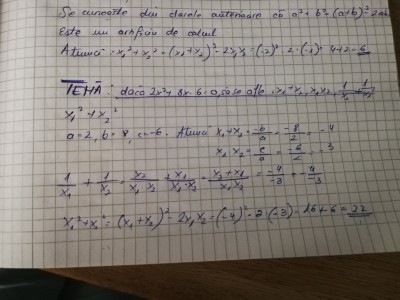 Se cunoaște din clasele anterioare că a²+b²=(a+b)²-2ab
Este un artificiu de calcul
Atunci x₁²+x₂²=(x₁+x₂)²-2x₁x₂=(-2)²-2·(-1)=4+2=6
TEMĂ: dacă 2x²+8x-6=0, să se afle x₁+x₂, x₁x₂, 1/x₁+1/x₂,
x₁²+x₂²
a=2, b=8, c=-6. Atunci x₁+x₂=-b/a=-8/2=-4
x₁x₂=c/a=-6/2=-3
1/x₁+1/x₂=x₂/(x₁x₂)+x₁/(x₁x₂)=(x₂+x₁)/(x₁x₂)=-4/-3=4/3
x₁²+x₂²=(x₁+x₂)²-2x₁x₂=(-4)²-2·(-3)=16+6=22